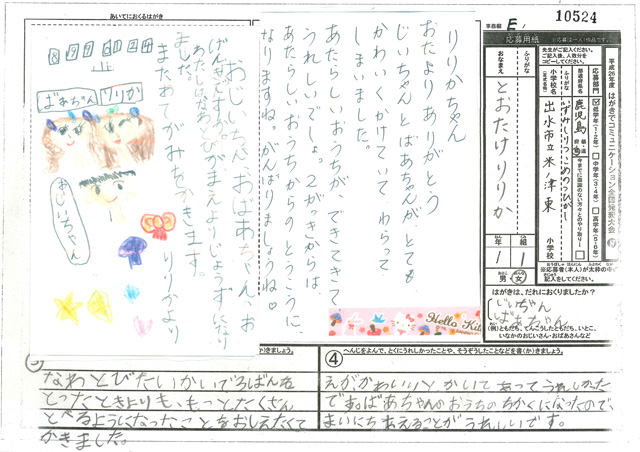 あいてにおくるはがき
ばあちゃん
りりか
おじいちゃん
おじいちゃん、おばあちゃん、お
げんきですか。
わたしはなわとびがまえよりじょうずになり
ました。
またおてがみかきます。
りりかより
りりかちゃん
おたよりありがとう
じいちゃんとばあちゃんが、とても
かわいくかけていて、わらって
しまいました。
あたらしいおうちが、できてきて
うれしいでしょ。2がっきからは、
あたらしいおうちからのとうこうに、
なりますね。がんばりましょうね♡
Hello Ki
E
10524
応募用紙
平成26年度 はがきでコミュニケーション全国発表大会
先生がご記入ください。
ご記入後、人数分を
コピーしてください。
応募部門
低学年(1・2年)
中学年(3・4年)
高学年(5・6年)
都道府県名
鹿児島
ふりがな
小学校名
いずみしりつこめのつひがし
出水市立米ノ津東
小学校
ふりがな
おなまえ
とおたけりりか
1年
1組
男・女
※応募者(本人)が太枠の中
記入をしてください。
はがきは、だれにおくりましたか?
じいちゃん
ばあちゃん
(例)ともだち、てんこうしたともだち、いとこ、
いなかのおじいさん・おばあさんなど
かきましょう。
なわとびたいかいで3ばんを
とったときよりも、もっとたくさん
とべるようになったことをおしえたくて
かきました。
④
へんじをよんで、とくにうれしかったことや、そうぞうしたことなどを書(か)きましょう。
えがかわいいとかいてあってうれしかった
です。ばあちゃんのおうちのちかくになったので、
まいにちあえることがうれしいです。